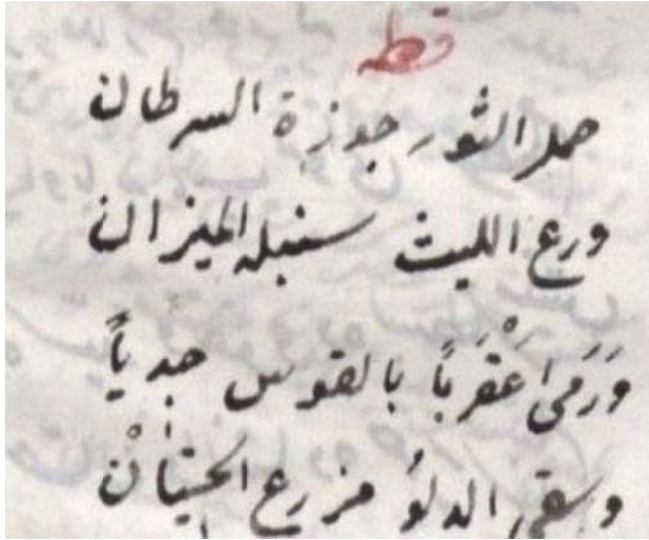 قطعه
حمل الثور جوزة السرطان
ورع الليث سنبله الميزان
وَرَمَى عَقْرَباً بالقوس جدياً
وسقى الدلوُ مزرع الحيتانْ